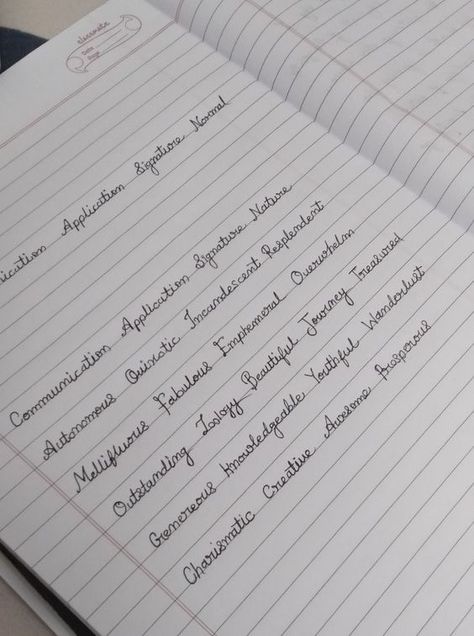 classmate
Date
Page
ication Application Signature Normal
Communication Application Signature Nature
Autonomous Quixotic Incandescent Resplendent
Mellifluous Fabulous Emphemeral Overwhelm
Outstanding Zoology Beautiful Journey Treasured
Genereous Knowledgeable Youthful Wanderlust
Charismatic Creative Awesome Prosporous